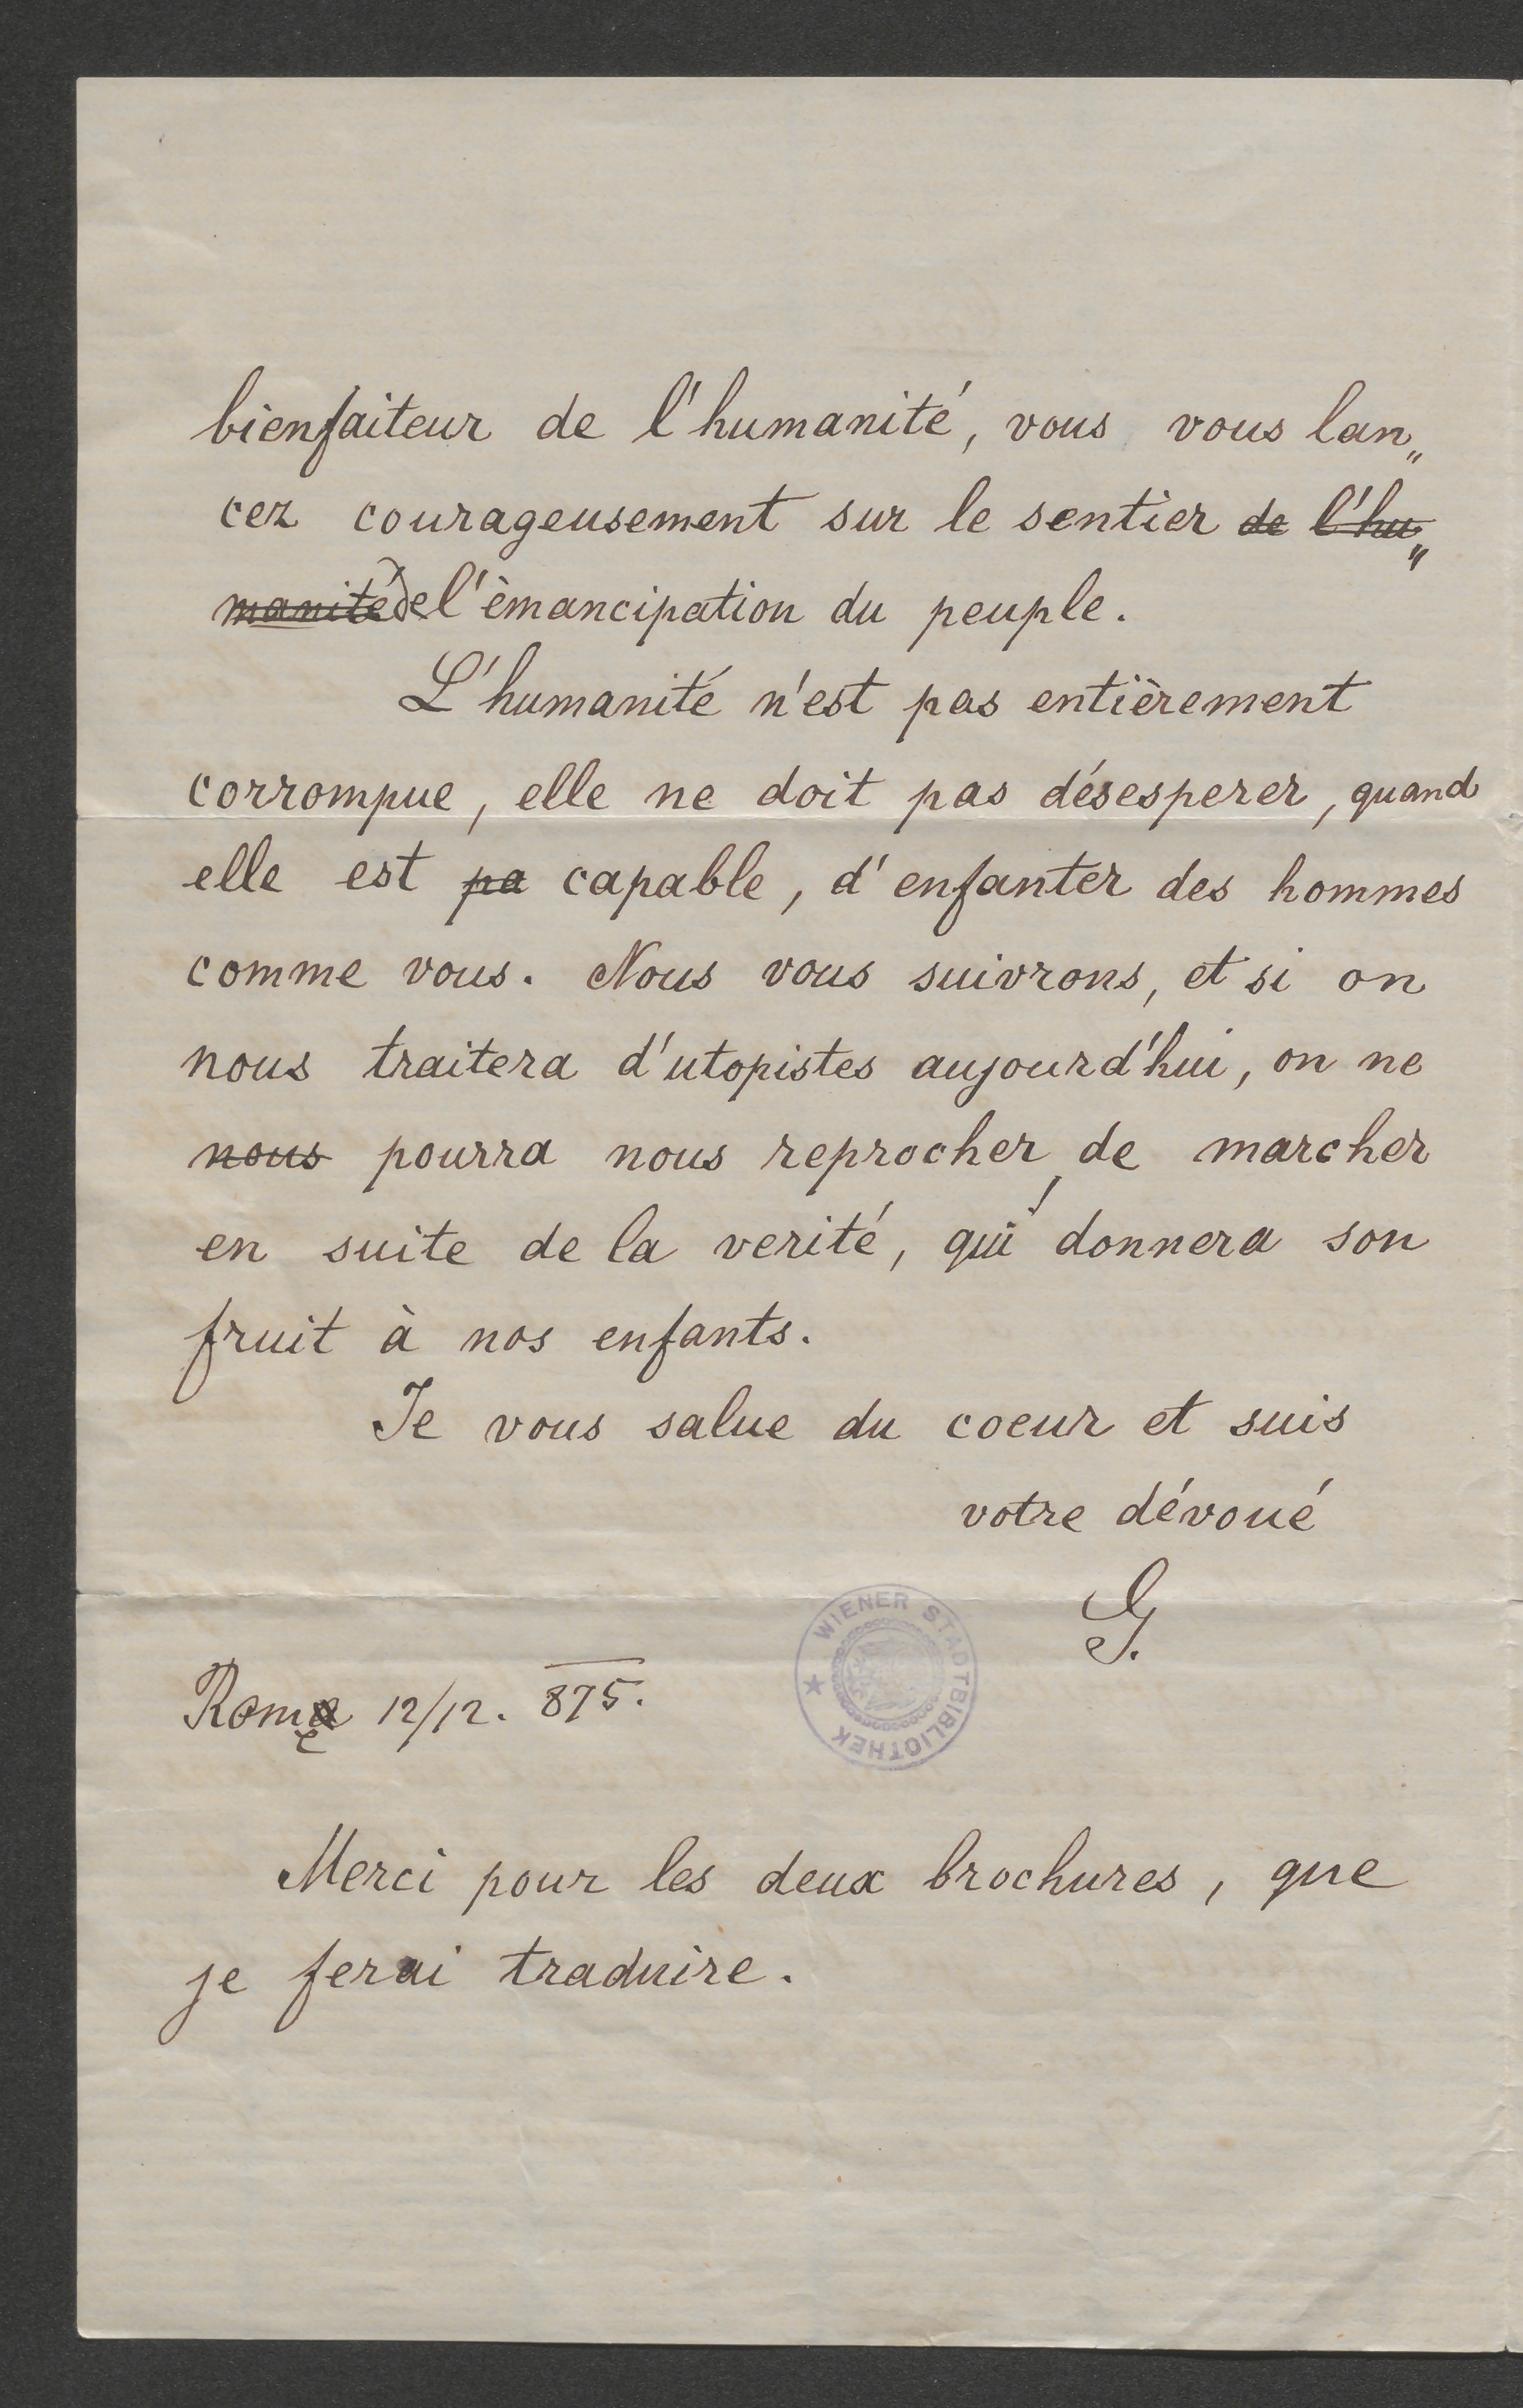 bienfaiteur de l'humanité, vous vous lan„
cez courageusement sur le sentier de l'hu„
manité de l'èmancipation du peuple.
L'humanité n'est pas entièrement
corrompue, elle ne doit pas désesperer, quand
elle est pa capable, d'enfanter des hommes
comme vous. Nous vous suivrons, et si on
nous traitera d'utopistes aujourd'hui, on ne
nous pourra nous reprocher, de marcher
en suite de la verité, qui donnera son
fruit à nos enfants.
Je vous salue du coeur et suis
votre dévoué
G.
WIENER STADTBIBLIOTHEK
Rome 12/12. 875.
Merci pour les deux brochures, que
je ferai traduire.